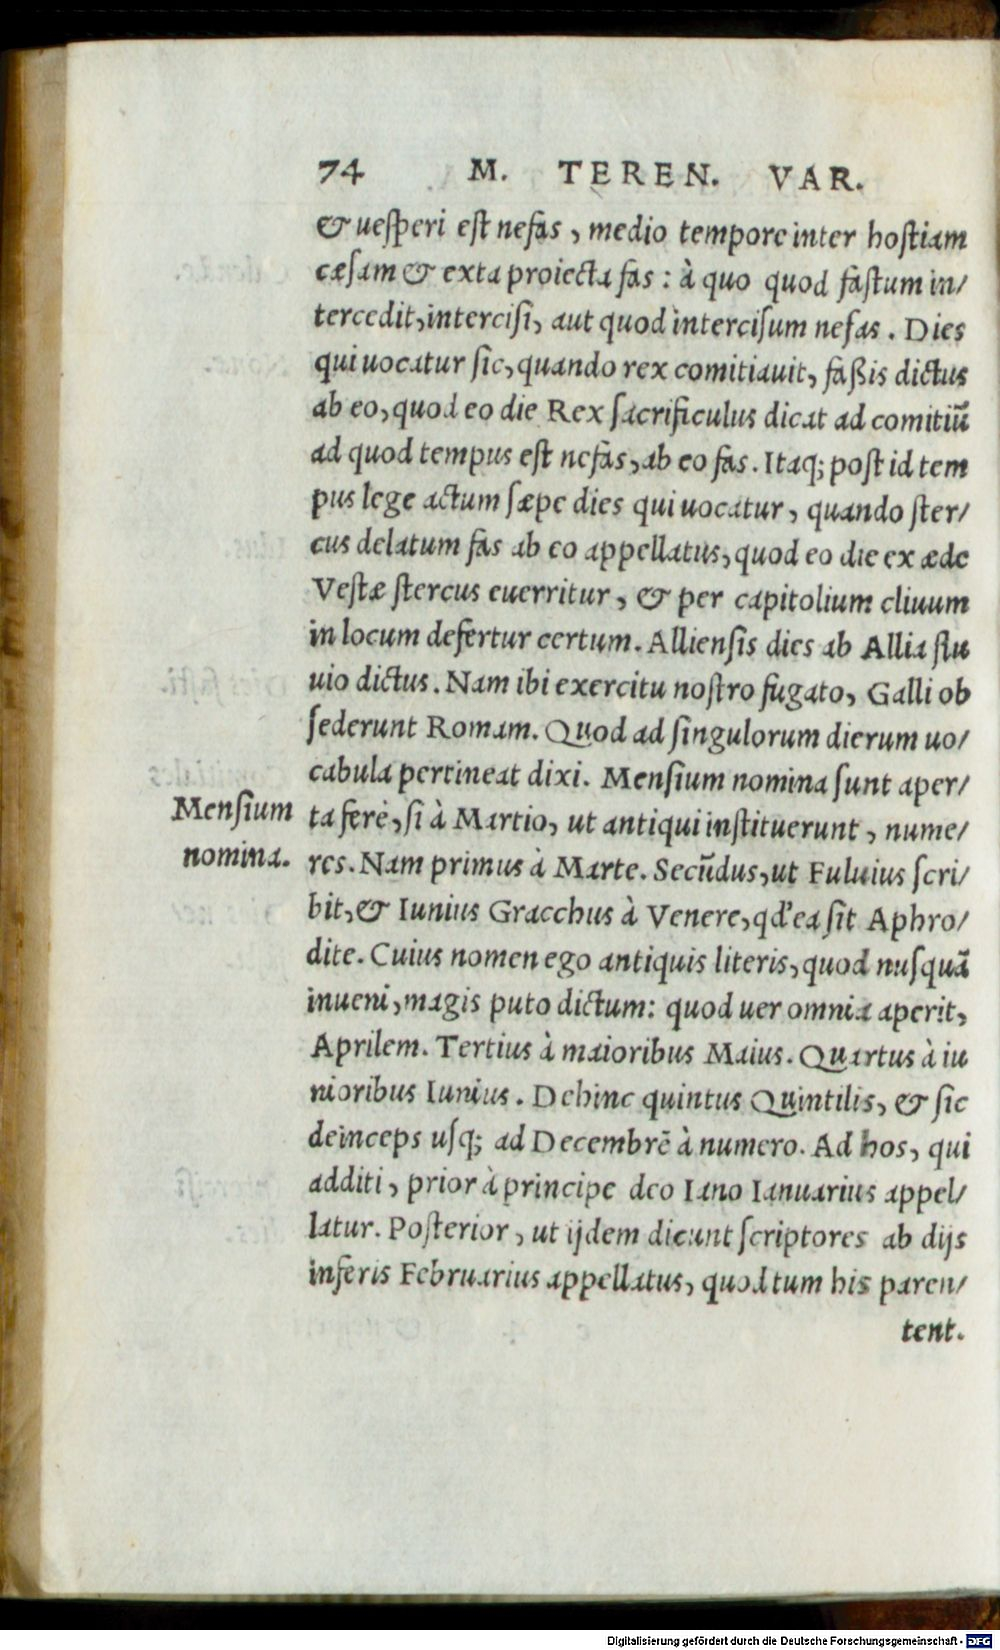 74 M. TEREN. VAR.
& uesperi est nefas, medio tempore inter hostiam
cæsam & exta proiecta fas: à quo quod fastum in/
tercedit, intercisi, aut quod intercisum nefas. Dies
qui uocatur sic, quando rex comitiauit, faßis dictus
ab eo, quod eo die Rex sacrificulus dicat ad comitiũ
ad quod tempus est nefas, ab eo fas. Itaq; post id tem
pus lege actum sæpe dies qui uocatur, quando ster/
cus delatum fas ab eo appellatus, quod eo die ex æde
Vestæ stercus euerritur, & per capitolium cliuum
in locum defertur certum. Alliensis dies ab Allia flu
uio dictus. Nam ibi exercitu nostro fugato, Galli ob
sederunt Romam. Quod ad singulorum dierum uo/
cabula pertineat dixi. Mensium nomina sunt aper/
Mensium
nomina.
ta ferè, si à Martio, ut antiqui instituerunt, nume/
res. Nam primus à Marte. Secũdus, ut Fuluius scri/
bit, & Iunius Gracchus à Venere, qd' ea sit Aphro/
dite. Cuius nomen ego antiquis literis, quod nusquã
inueni, magis puto dictum: quod uer omnia aperit,
Aprilem. Tertius à maioribus Maius. Quartus à iu
nioribus Iunius. Dehinc quintus Quintilis, & sic
deinceps usq; ad Decembrẽ à numero. Ad hos, qui
additi, prior à principe deo Iano Ianuarius appel/
latur. Posterior, ut ijdem dicunt scriptores ab dijs
inferis Februarius appellatus, quod tum his paren/
tent.
Digitalisierung gefördert durch die Deutsche Forschungsgemeinschaft - DFG